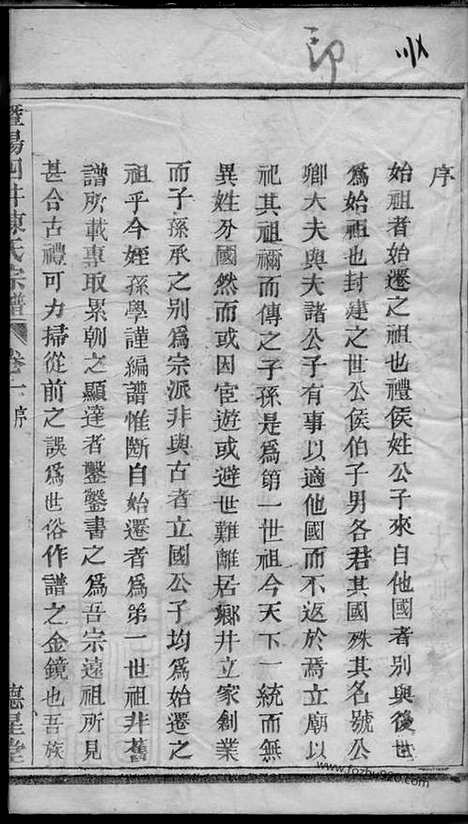 印
序
始祖者始遷之祖也禮侯姓公子來自他國者別與後世
爲始祖也封建之世公侯伯子男各君其國殊其名號公
卿大夫與夫諸公子有事以適他國而不返於焉立廟以
祀其祖禰而傳之子孫是爲第一世祖今天下一統而無
異姓分國然而或因宦遊或避世難離居鄉井立家創業
而子孫承之别爲宗派非與古者立國公子均爲始遷之
祖乎今姪孫學謹編譜惟斷自始遷者爲第一世祖非舊
譜所載專取累朝之顯達者鑿鑿書之爲吾宗遠祖所見
甚合古禮可力掃從前之誤爲世俗作譜之金鏡也吾族
暨陽 陳氏宗譜 卷一 序 德星堂
www.fozhu920.com